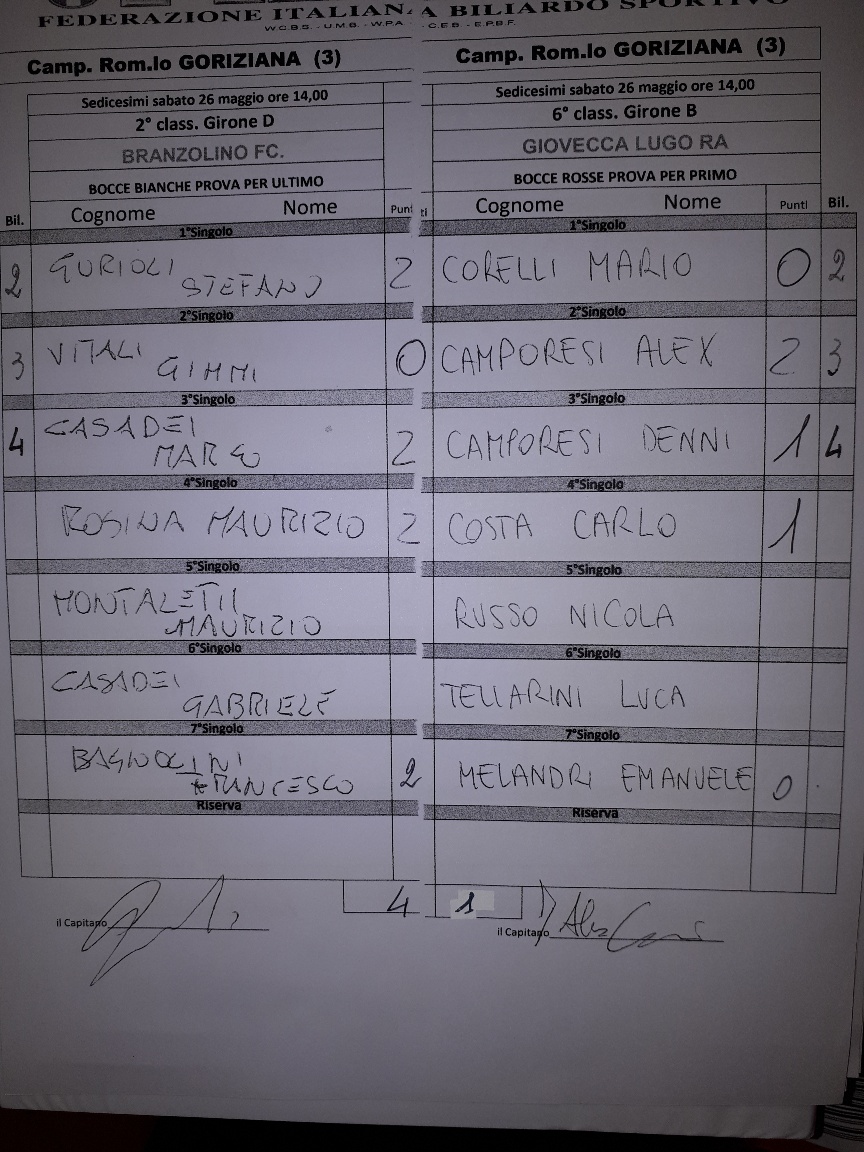 FEDERAZIONE ITALIANA BILIARDO SPORTIVO
W.C.B.S. - U.M.B. - W.P.A. - C.E.B. - E.P.B.F.
Camp. Rom.lo GORIZIANA (3)
Sedicesimi sabato 26 maggio ore 14,00
2° class. Girone D
BRANZOLINO FC.
BOCCE BIANCHE PROVA PER ULTIMO
Bil. Cognome Nome Punti
1°Singolo
2 GURIOLI STEFANO 2
2°Singolo
3 VITALI GIMMI 0
3°Singolo
4 CASADEI MARCO 2
4°Singolo
ROSINA MAURIZIO 2
5°Singolo
MONTALETTI MAURIZIO
6°Singolo
CASADEI GABRIELE
7°Singolo
BAGNOLINI FRANCESCO 2
Riserva
4
il Capitano
Camp. Rom.lo GORIZIANA (3)
Sedicesimi sabato 26 maggio ore 14,00
6° class. Girone B
GIOVECCA LUGO RA
BOCCE ROSSE PROVA PER PRIMO
Cognome Nome Punti Bil.
1°Singolo
CORELLI MARIO 0 2
2°Singolo
CAMPORESI ALEX 2 3
3°Singolo
CAMPORESI DENNI 1 4
4°Singolo
COSTA CARLO 1
5°Singolo
RUSSO NICOLA
6°Singolo
TELLARINI LUCA
7°Singolo
MELANDRI EMANUELE 0
Riserva
1
il Capitano